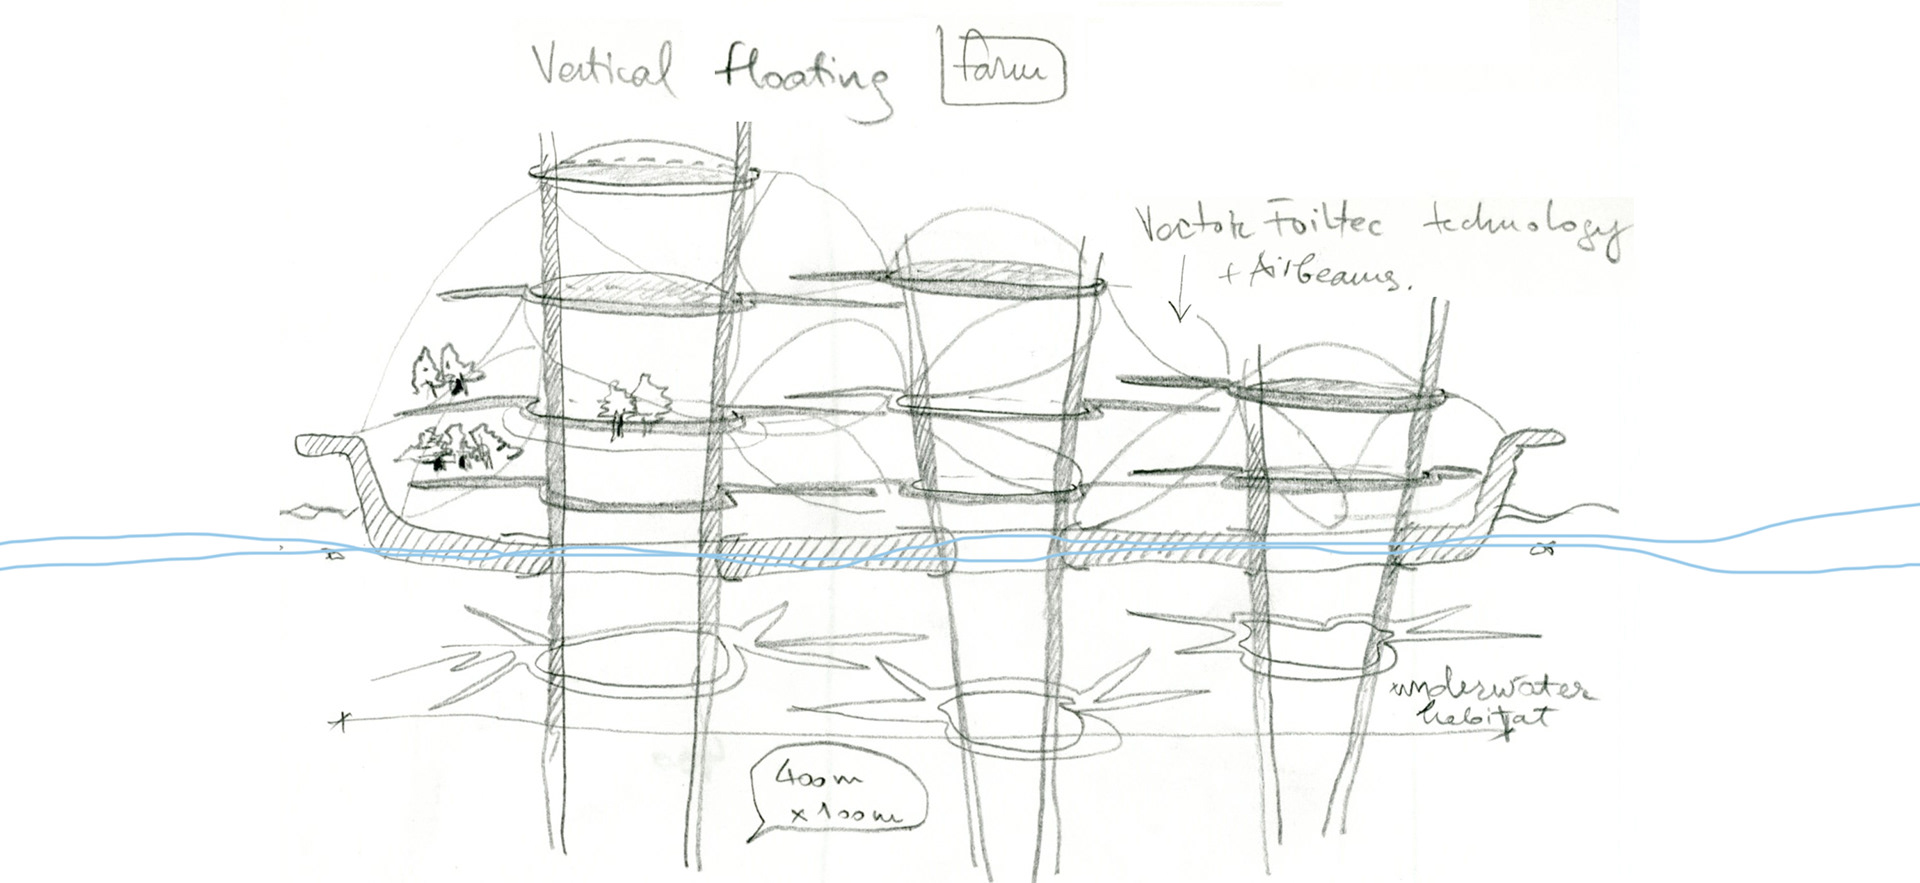 Vertical floating farm
Vector Foiltec technology
+ Airbeams.
underwater
habitat
400m
x 100m